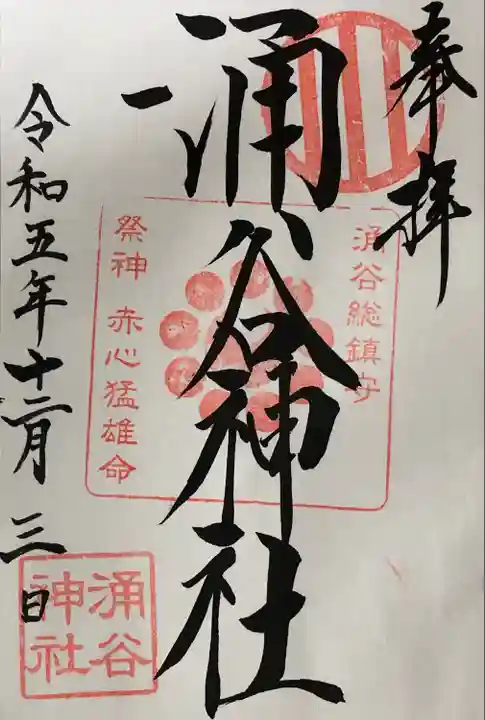 奉拝
涌谷神社
涌谷総鎮守
祭神 赤心猛雄命
令和五年十二月三日
涌谷
神社